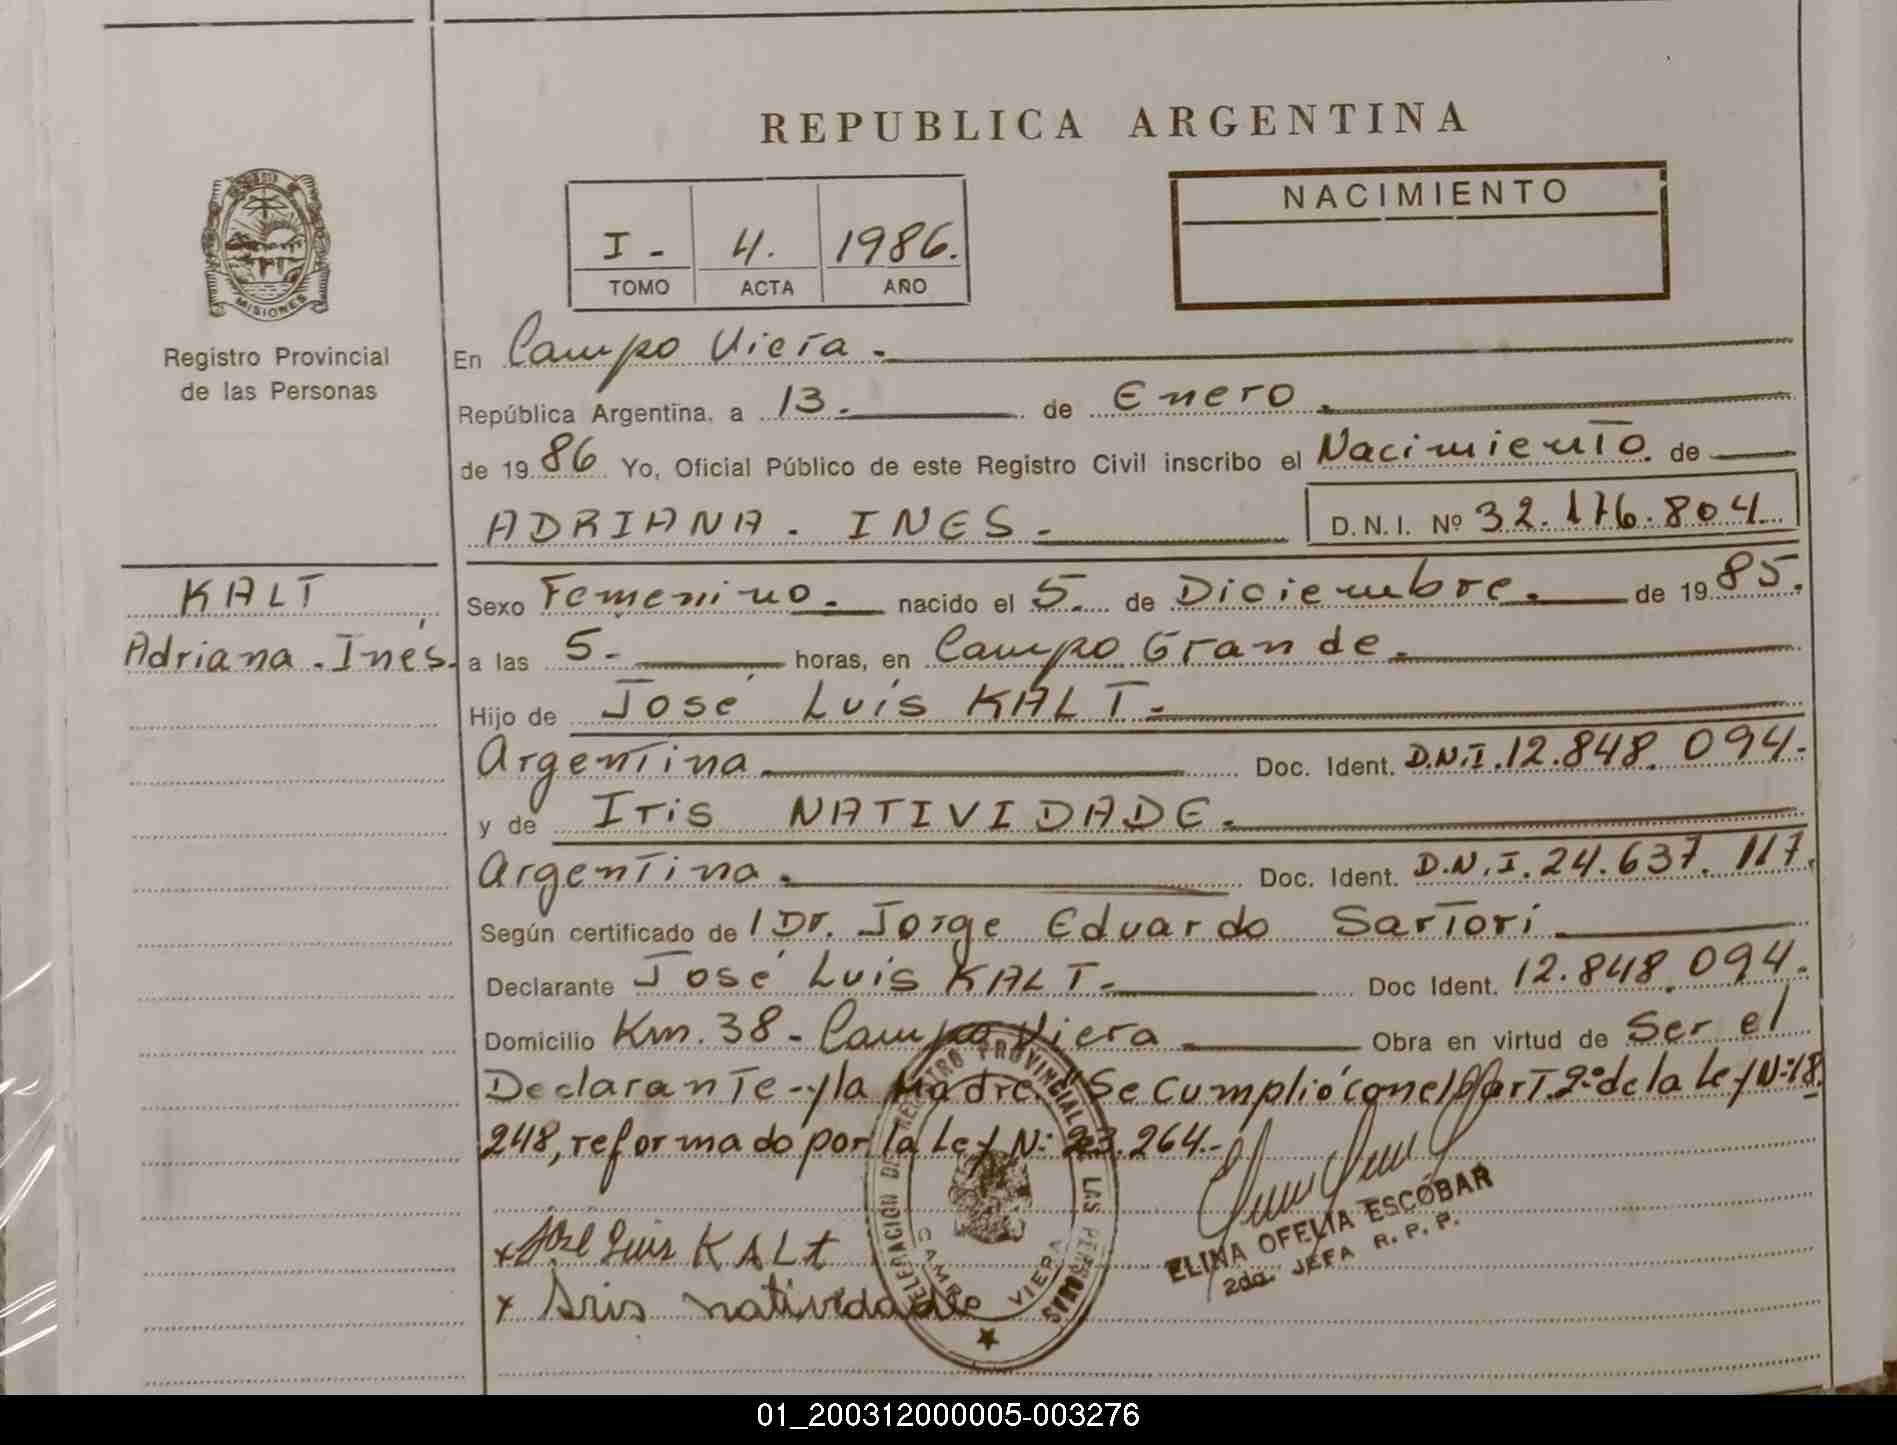 REPUBLICA ARGENTINA
NACIMIENTO
I - 4. 1986.
TOMO ACTA AÑO
MISIONES
Registro Provincial
de las Personas
En Campo Viera.
República Argentina, a 13. de Enero.
de 19 86 Yo, Oficial Público de este Registro Civil inscribo el Nacimiento de
ADRIANA. INES. D.N.I. Nº 32.176.804
KALT
Adriana. Inés.
Sexo Femenino. nacido el 5. de Diciembre. de 19 85.
a las 5. horas, en Campo Grande.
Hijo de José Luis KALT.
Argentina Doc. Ident. D.N.I. 12.848.094.
y de Iris NATIVIDADE.
Argentina. Doc. Ident. D.N.I. 24.637.117.
Según certificado de l Dr. Jorge Eduardo Sartori
Declarante José Luis KALT. Doc Ident. 12.848.094.
Domicilio Km. 38 - Campo Viera Obra en virtud de Ser el
Declarante - y la Madre. "Se cumplió con el art. 2º de la Ley Nº 18.
248, reformado por la Ley Nº 23.264.-
DELEGACION DEL REGISTRO PROVINCIAL DE LAS PERSONAS
CAMPO VIERA
x José Luis KALt
x Iris natividade
ELINA OFELIA ESCOBAR
2da. JEFA R. P. P.
01_200312000005-003276